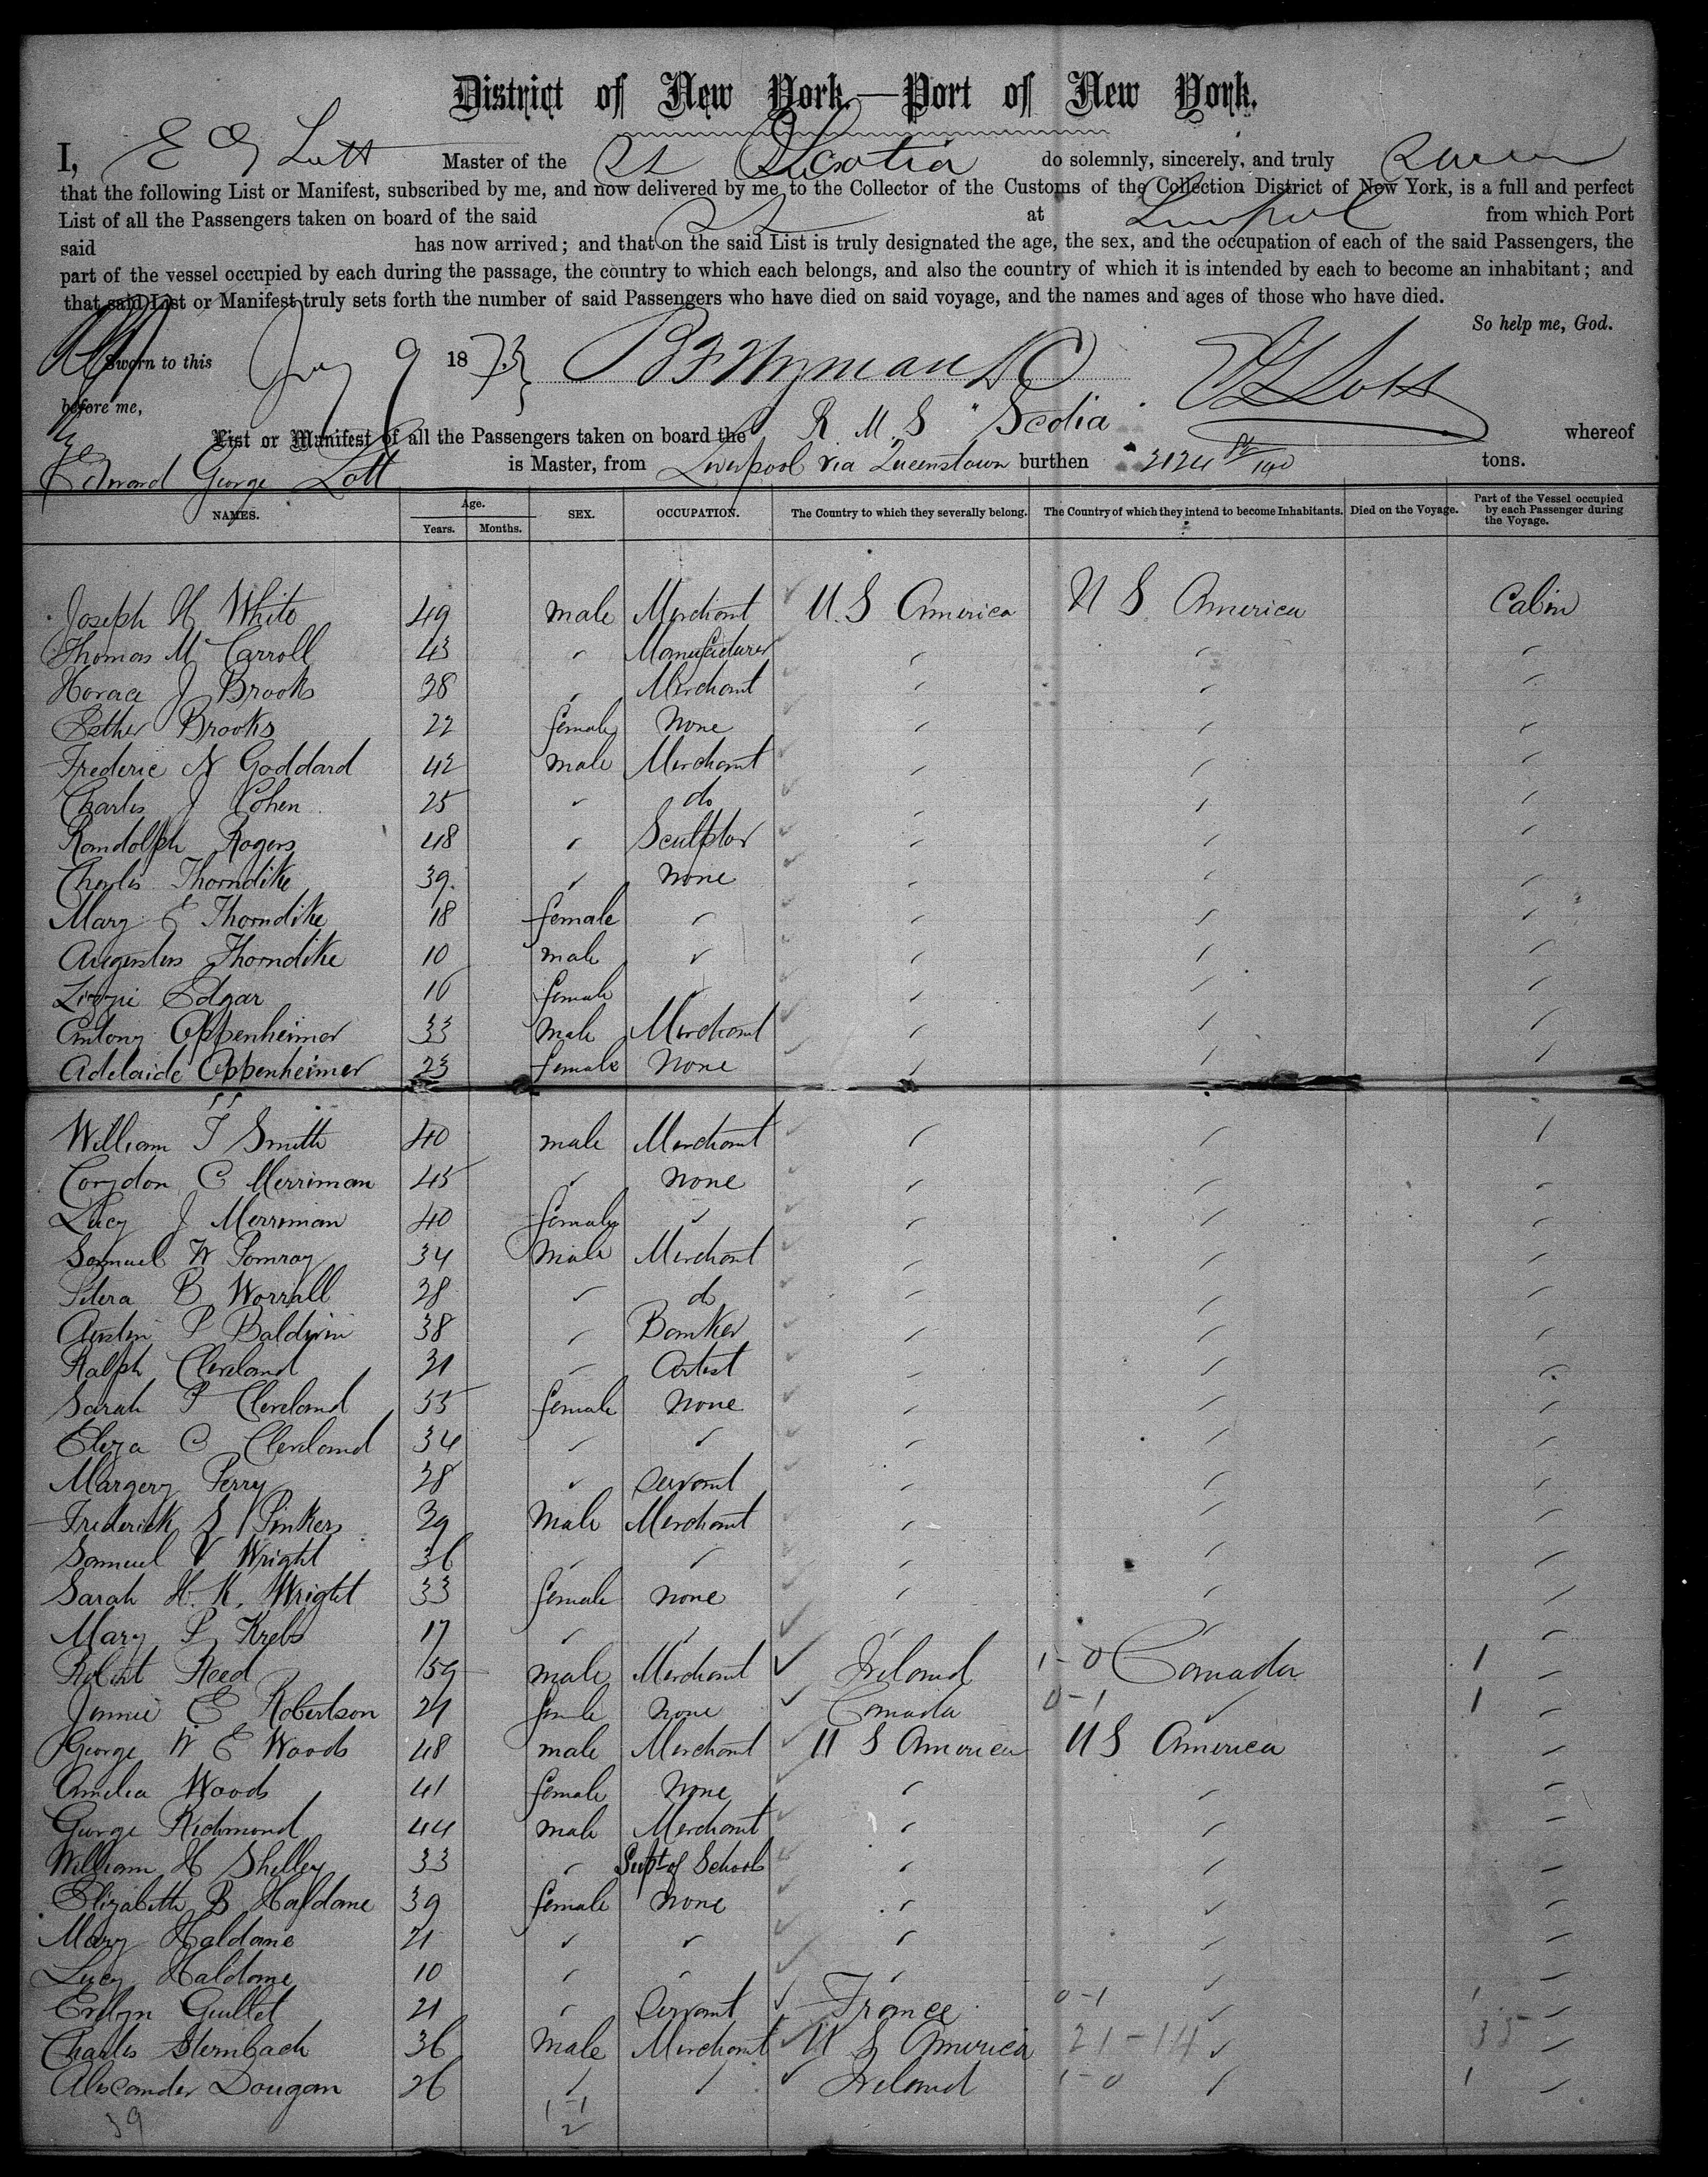 District of New York.—Port of New York.
I, E G Lott Master of the SS Scotia do solemnly, sincerely, and truly swear
that the following List or Manifest, subscribed by me, and now delivered by me to the Collector of the Customs of the Collection District of New York, is a full and perfect
List of all the Passengers taken on board of the said SS at Liverpool from which Port
said has now arrived; and that on the said List is truly designated the age, the sex, and the occupation of each of the said Passengers, the
part of the vessel occupied by each during the passage, the country to which each belongs, and also the country of which it is intended by each to become an inhabitant; and
that said List or Manifest truly sets forth the number of said Passengers who have died on said voyage, and the names and ages of those who have died.
So help me, God.
Sworn to this 9 1873
before me, E G Lott
List or Manifest of all the Passengers taken on board the R M S "Scotia" whereof
Edward George Lott is Master, from Liverpool via Queenstown burthen 2124 tons.
NAMES. Age. Years. Months. SEX. OCCUPATION. The Country to which they severally belong. The Country of which they intend to become Inhabitants. Died on the Voyage. Part of the Vessel occupied by each Passenger during the Voyage.
Joseph H White 49 male Merchant U.S America U S America Cabin
Thomas M Carroll 43 " Manufacturer " " "
Horace J Brooks 38 " Merchant " " "
Esther Brooks 22 female None " " "
Frederic N Goddard 42 male Merchant " " "
Charles J Cohen 25 " do " " "
Randolph Rogers 48 " Sculptor " " "
Charles Thorndike 39 " None " " "
Mary E Thorndike 18 female " " " "
Augustus Thorndike 10 male " " " "
Lizzie Edgar 16 female " " " "
Antony Oppenheimer 33 male Merchant " " "
Adelaide Oppenheimer 23 female None " " "
William T Smith 40 male Merchant " " "
Corydon C Merriman 45 " None " " "
Lucy J Merriman 40 female " " " "
Samuel W Pomroy 34 Male Merchant " " "
B Worrall 28 " do " " "
Austin P Baldwin 38 " Banker " " "
Ralph Cleveland 31 " Artist " " "
Sarah P Cleveland 35 female None " " "
Eliza C Cleveland 34 " " " " "
Margery Perry 28 " Servant " " "
Frederick S Pinkers 39 Male Merchant " " "
Samuel V Wright 36 " " " " "
Sarah H. K. Wright 33 female none " " "
Mary P Krebs 17 " " " " "
Robert Reed 59 male Merchant Ireland 1-0 Canada 1 "
Jennie E Robertson 21 female none Canada 0-1 " 1 "
George W E Woods 48 male Merchant U S America U S America "
Amelia Woods 41 female None " " "
George Richmond 44 male Merchant " " "
William H Shelley 33 " Supt of Schools " " "
Elizabeth B Haldane 39 female none " " "
Mary Haldane 21 " " " " "
Lucy Haldane 10 " " " " "
Evelyn Guillet 21 " Servant France 0-1 " 1 "
Charles Sternbach 36 Male Merchant U S America 21-14 " 35 "
Alexander Dougan 26 " " Ireland 1-0 " 1 "
39 1-1
2